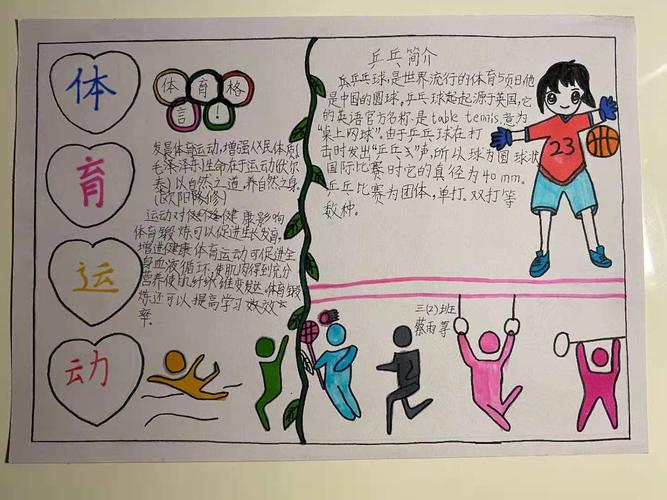 体
育
运
动
体育格
言!
发展体育运动,增强人民体质
(毛泽东)生命在于运动(伏尔
泰)以自然之道,养自然之身。
(欧阳修)
运动对促健康影响
体育锻炼可以促进生长发育,
增进健康体育运动可促进全
身血液循环,使肌肉得到充分
营养使肌纤维变发达体育锻
炼还可以提高学习效
率。
乒乓简介
乒乓球,是世界流行的体育项目他
是中国的圆球,乒乓球起源于英国,它
的英语官方名称是table tennis,意为
"桌上网球"。由于乒乓球在打
击时发出"乒乓"声,所以球为圆球状
国际比赛时它的直径为40mm。
乒乓比赛为团体,单打,双打等
数种。
23
三(2)班
蔡雨等